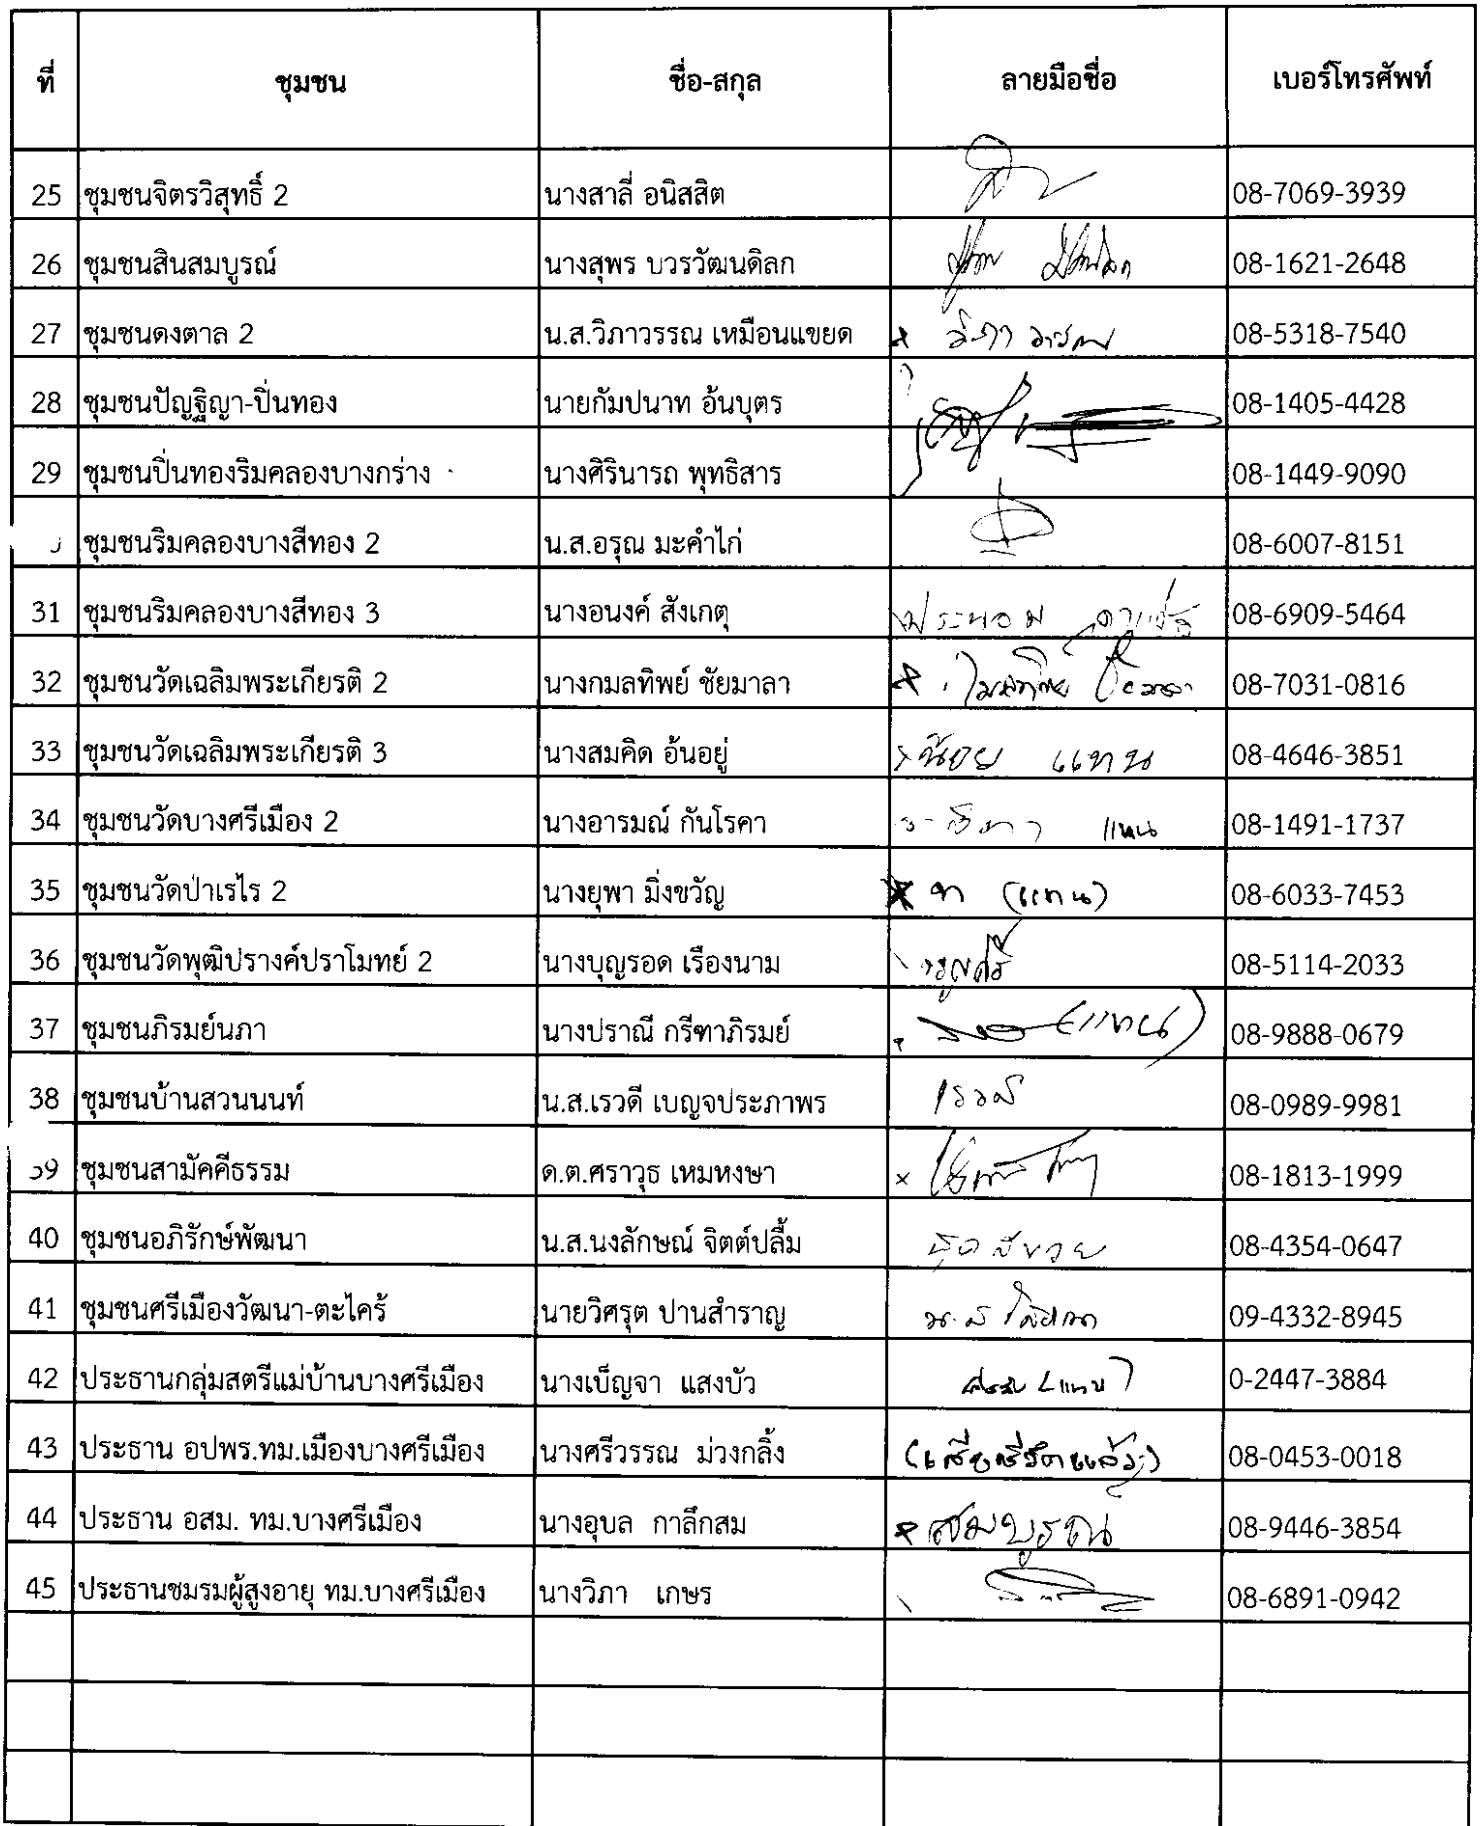 ที่ ชุมชน ชื่อ-สกุล ลายมือชื่อ เบอร์โทรศัพท์
25 ชุมชนจิตรวิสุทธิ์ 2 นางสาลี่ อนิสสิต 08-7069-3939
26 ชุมชนสินสมบูรณ์ นางสุพร บวรวัฒนดิลก 08-1621-2648
27 ชุมชนดงตาล 2 น.ส.วิภาวรรณ เหมือนแขยด 08-5318-7540
28 ชุมชนปัญฐิญา-ปิ่นทอง นายกัมปนาท อ้นบุตร 08-1405-4428
29 ชุมชนปิ่นทองริมคลองบางกร่าง นางศิรินารถ พุทธิสาร 08-1449-9090
ชุมชนริมคลองบางสีทอง 2 น.ส.อรุณ มะคำไก่ 08-6007-8151
31 ชุมชนริมคลองบางสีทอง 3 นางอนงค์ สังเกตุ ประนอม 08-6909-5464
32 ชุมชนวัดเฉลิมพระเกียรติ 2 นางกมลทิพย์ ชัยมาลา 08-7031-0816
33 ชุมชนวัดเฉลิมพระเกียรติ 3 นางสมคิด อ้นอยู่ น้อย แทน 08-4646-3851
34 ชุมชนวัดบางศรีเมือง 2 นางอารมณ์ กันโรคา แทน 08-1491-1737
35 ชุมชนวัดป่าเรไร 2 นางยุพา มิ่งขวัญ (แทน) 08-6033-7453
36 ชุมชนวัดพุฒิปรางค์ปราโมทย์ 2 นางบุญรอด เรืองนาม 08-5114-2033
37 ชุมชนภิรมย์นภา นางปราณี กรีฑาภิรมย์ (แทน) 08-9888-0679
38 ชุมชนบ้านสวนนนท์ น.ส.เรวดี เบญจประภาพร เรวดี 08-0989-9981
39 ชุมชนสามัคคีธรรม ด.ต.ศราวุธ เหมหงษา 08-1813-1999
40 ชุมชนอภิรักษ์พัฒนา น.ส.นงลักษณ์ จิตต์ปลื้ม 08-4354-0647
41 ชุมชนศรีเมืองวัฒนา-ตะไคร้ นายวิศรุต ปานสำราญ 09-4332-8945
42 ประธานกลุ่มสตรีแม่บ้านบางศรีเมือง นางเบ็ญจา แสงบัว 0-2447-3884
43 ประธาน อปพร.ทม.เมืองบางศรีเมือง นางศรีวรรณ ม่วงกลิ้ง (เสียชีวิตแล้ว) 08-0453-0018
44 ประธาน อสม. ทม.บางศรีเมือง นางอุบล กาลึกสม สมบูรณ์ 08-9446-3854
45 ประธานชมรมผู้สูงอายุ ทม.บางศรีเมือง นางวิภา เกษร 08-6891-0942